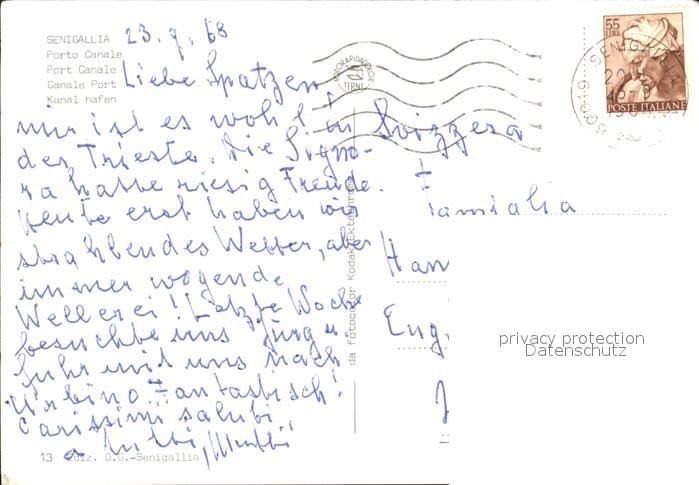 SENIGALLIA
Porto Canale
Port Canale
Canale Port
Kanal hafen
23.9.68
Liebe Spatzen,
mir ist es wohl in
der Trieste. Die Signo-
ra hatte riesig Freude.
Heute erst haben wir
strahlendes Wetter, aber
immer wogende
Wellerei! Letzte Woche
besuchte uns Jürg u.
fuhr mit uns nach
Urbino. Fantastisch!
Carissimi saluti
a tutti,
13 Ediz. D.G.-Senigallia
da Fotocolor Kodak Ektachrome
55
LIRE
POSTE ITALIANE
60019 SENIGALLIA
Svizzera
Famiglia
Han
Eug.
privacy protection
Datenschutz